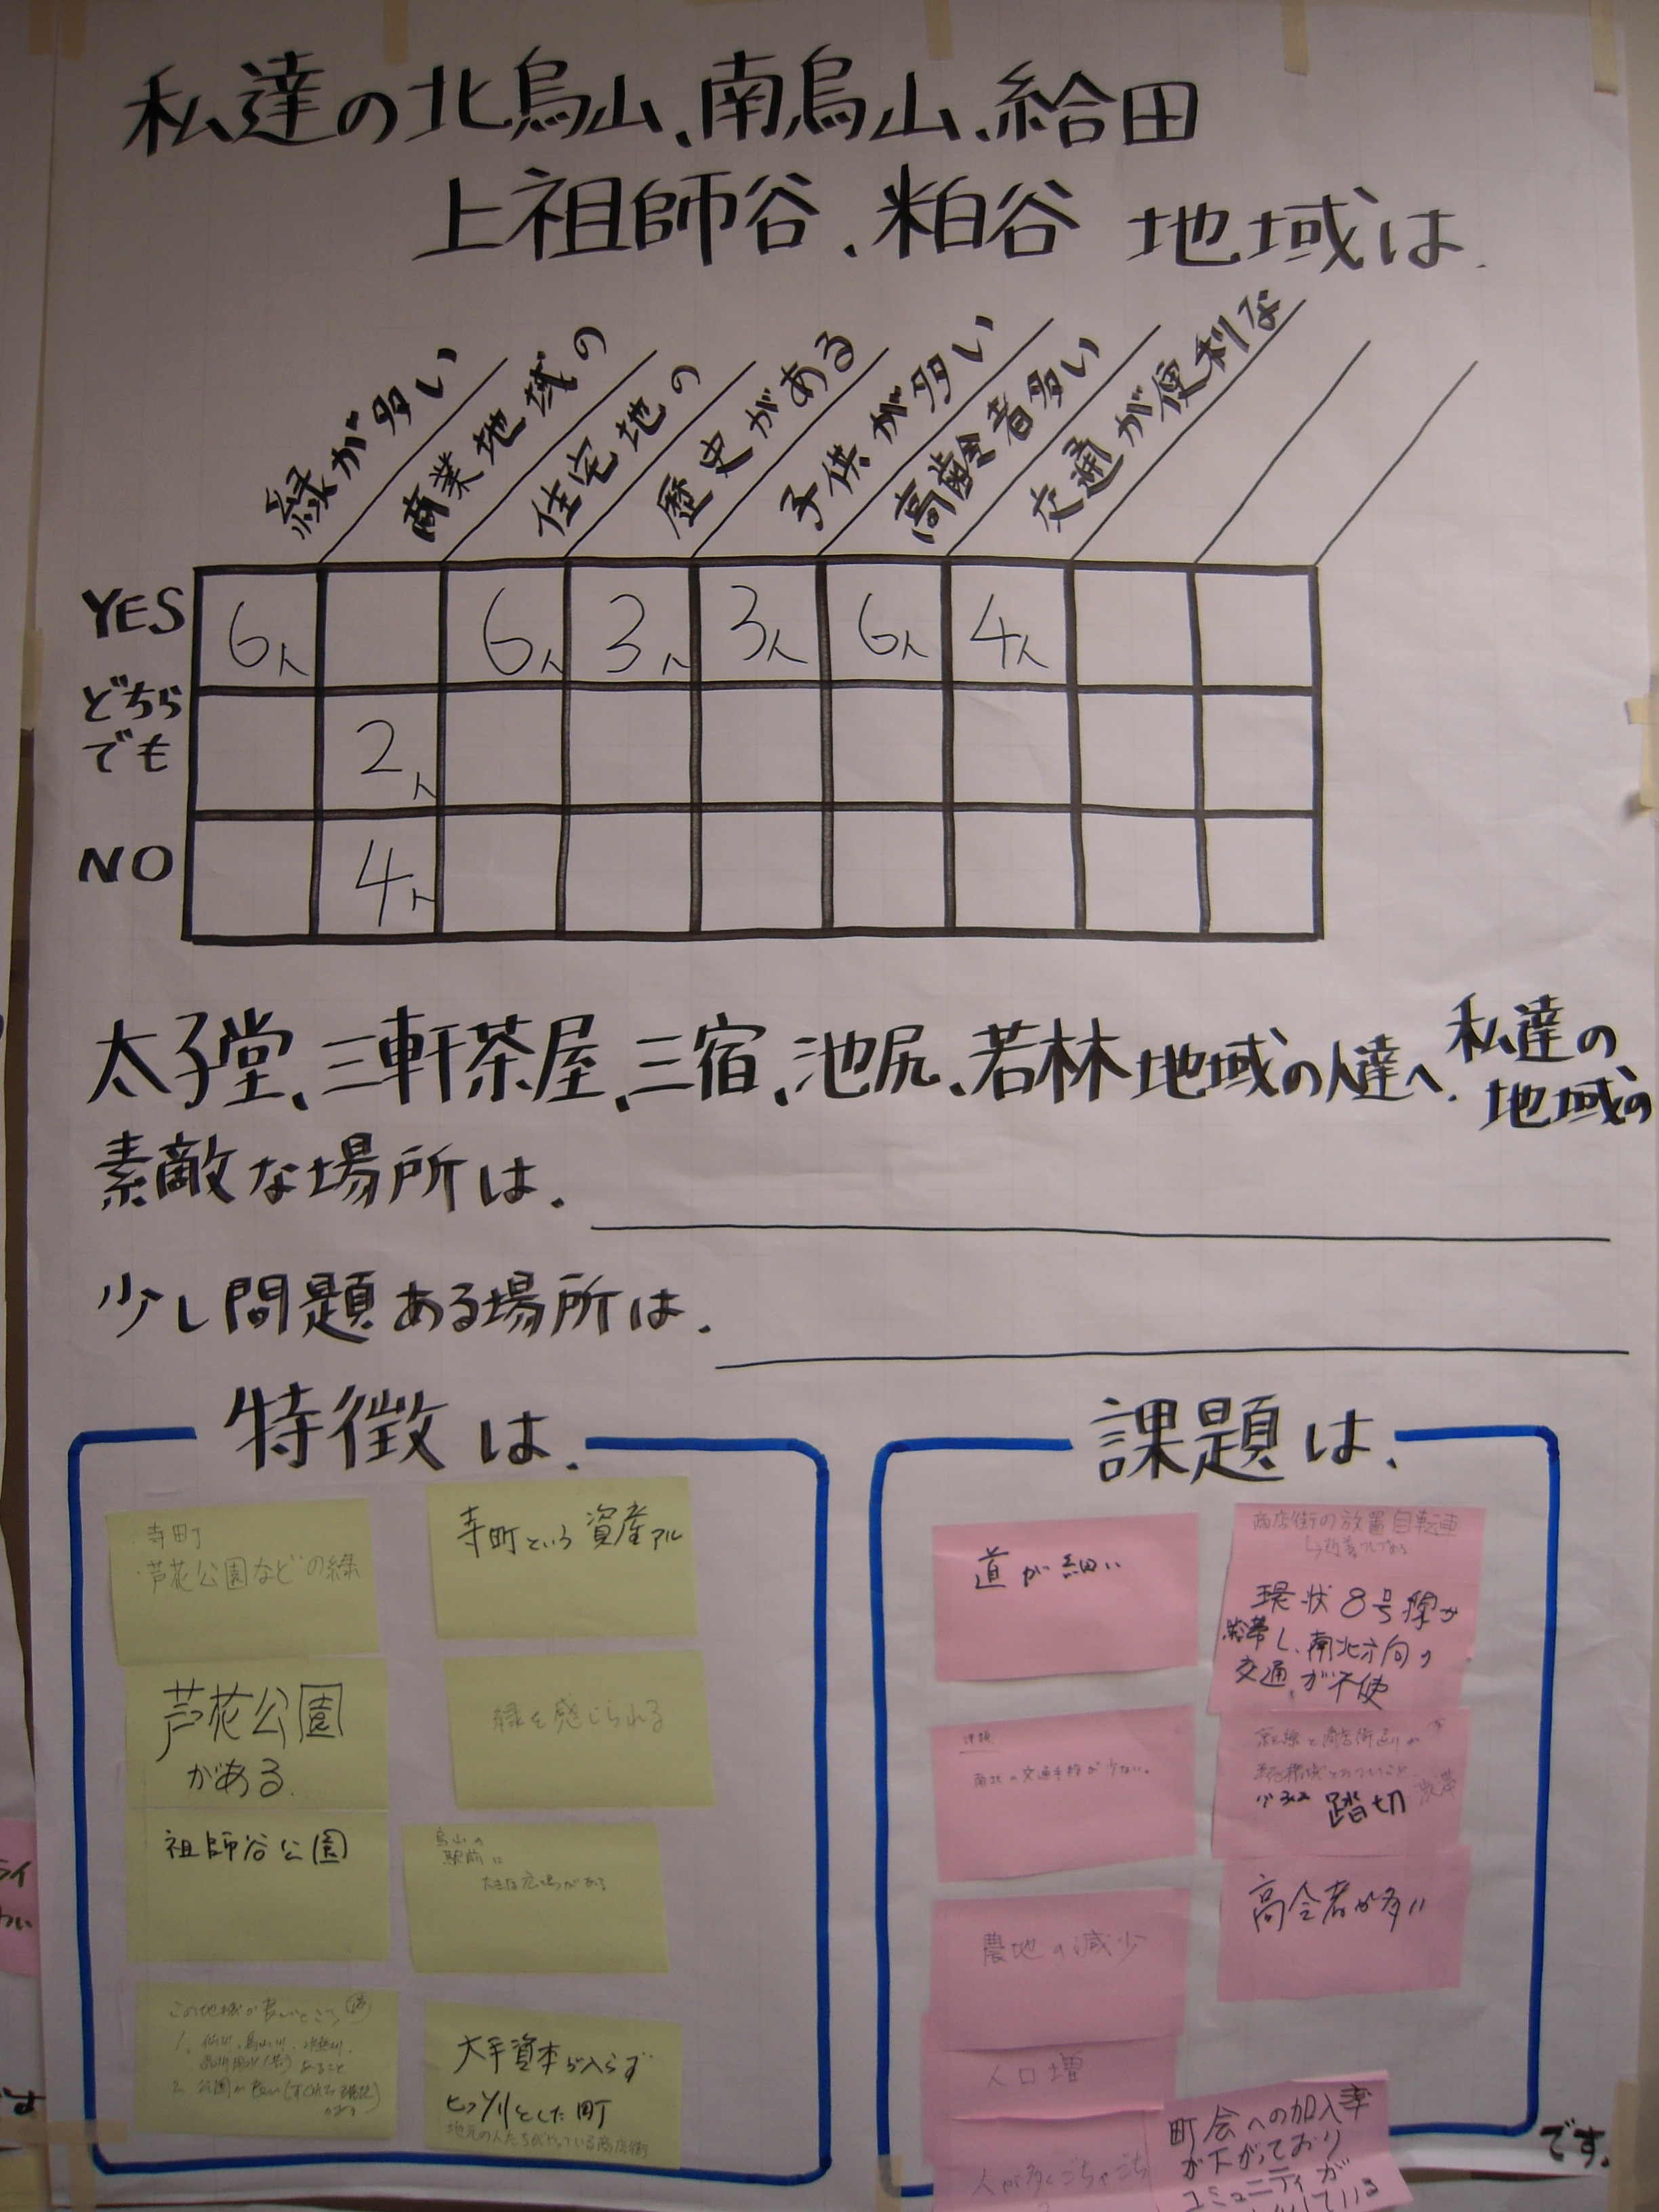 私達の北烏山、南烏山、給田
上祖師谷、粕谷 地域は、
緑が多い
商業地域の
住宅地の
歴史がある
子供が多い
高齢者多い
交通が便利な
YES 6人 6人 3人 3人 6人 4人
どちら
でも 2人
NO 4人
太子堂、三軒茶屋、三宿、池尻、若林地域の人達へ、私達の
地域の
素敵な場所は、
少し問題ある場所は、
特徴は、
寺町
芦花公園などの緑
寺町という資産アル
芦花公園
がある
緑を感じられる
祖師谷公園
烏山の
駅前に
大きな広場がある
この地域の良いところ
大手資本が入らず
ヒッソリとした町
地元の人たちがやっている商店街
課題は、
道が細い
商店街の放置自転車
環状8号線が
渋滞し、南北方向の
交通が不便
南北の交通手段が少ない。
踏切
農地の減少
高令者が多い
人口増
人が多くごちゃごち
町会への加入率
が下がっており
コミュニティが
です。